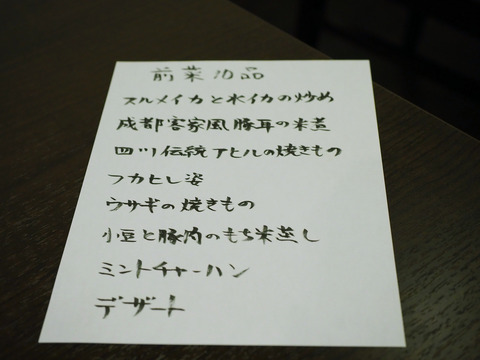 前菜10品
スルメイカと水イカの炒め
成都客家風豚耳の米煮
四川伝統アヒルの焼きもの
フカヒレ姿
ウサギの焼きもの
小豆と豚肉のもち米蒸し
ミントチャーハン
デザート